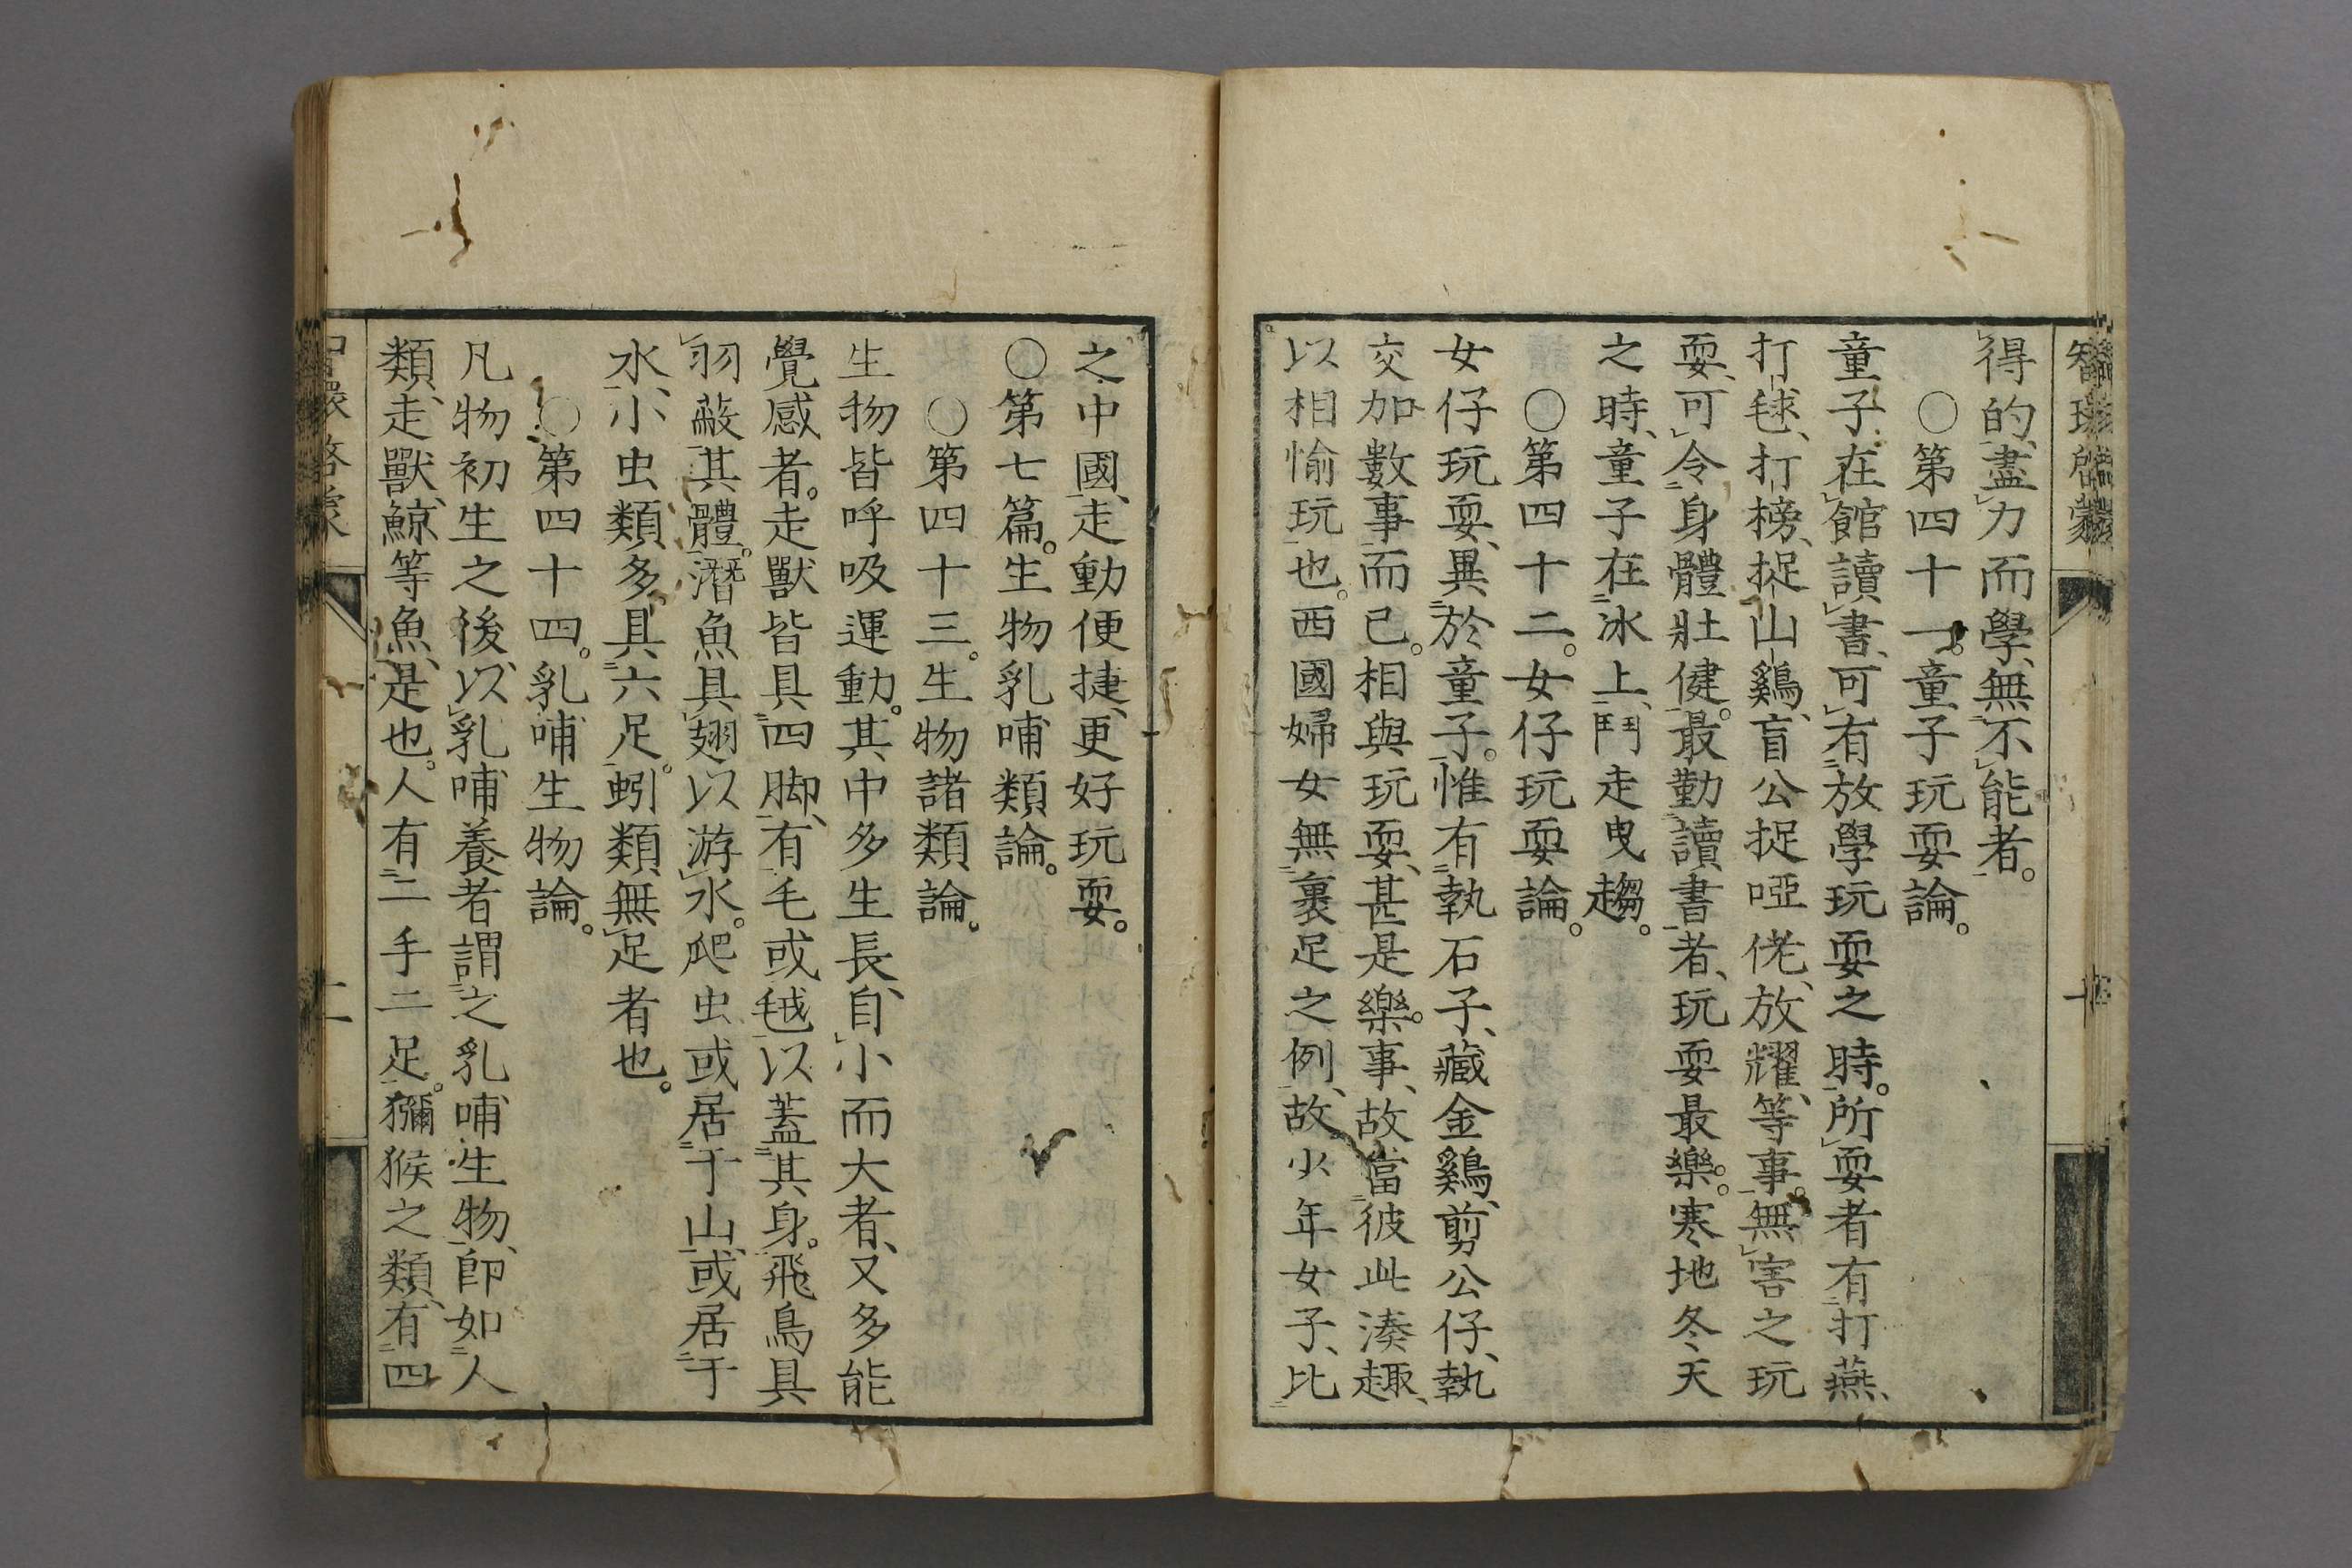 智環啓蒙
得的、盡力而學、無不能者。
○第四十一。童子玩耍論。
童子在館讀書、可有放學玩耍之時。所耍者有打燕、
打毬、打榜、捉山鷄、盲公捉啞佬、放耀、等事。無害之玩
耍、可令身體壯健。最勤讀書者、玩耍最樂。寒地冬天
之時、童子在氷上、鬥走曳趨。
○第四十二。女仔玩耍論。
女仔玩耍、異於童子。惟有執石子、藏金鷄、剪公仔、執
交加數事而已。相與玩耍、甚是樂事、故當彼此湊趣、
以相愉玩也。西國婦女無裹足之例、故少年女子、比
之中國、走動便捷、更好玩耍。
○第七篇。生物乳哺類論。
○第四十三。生物諸類論。
生物皆呼吸運動。其中多生長、自小而大者、又多能
覺感者。走獸皆具四脚、有毛或毧以蓋其身。飛鳥具
羽蔽其體。潛魚具翅以游水。爬虫或居于山、或居于
水、小虫類多具六足。蚓類無足者也。
○第四十四。乳哺生物論。
凡物初生之後、以乳哺養者謂之乳哺生物、即如人
類、走獸、鯨等魚、是也。人有二手二足。獼猴之類、有四